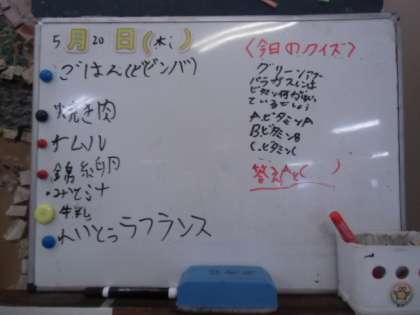 5月20日(水)
ごはん(ビビンバ)
焼き肉
ナムル
錦糸卵
牛乳
れいとうラフランス
〈今日のクイズ〉
グリーンアス
パラガスには
ビタミン何が
ているでしょう
A.ビタミンA
B.ビタミンB
C.ビタミンC
答え